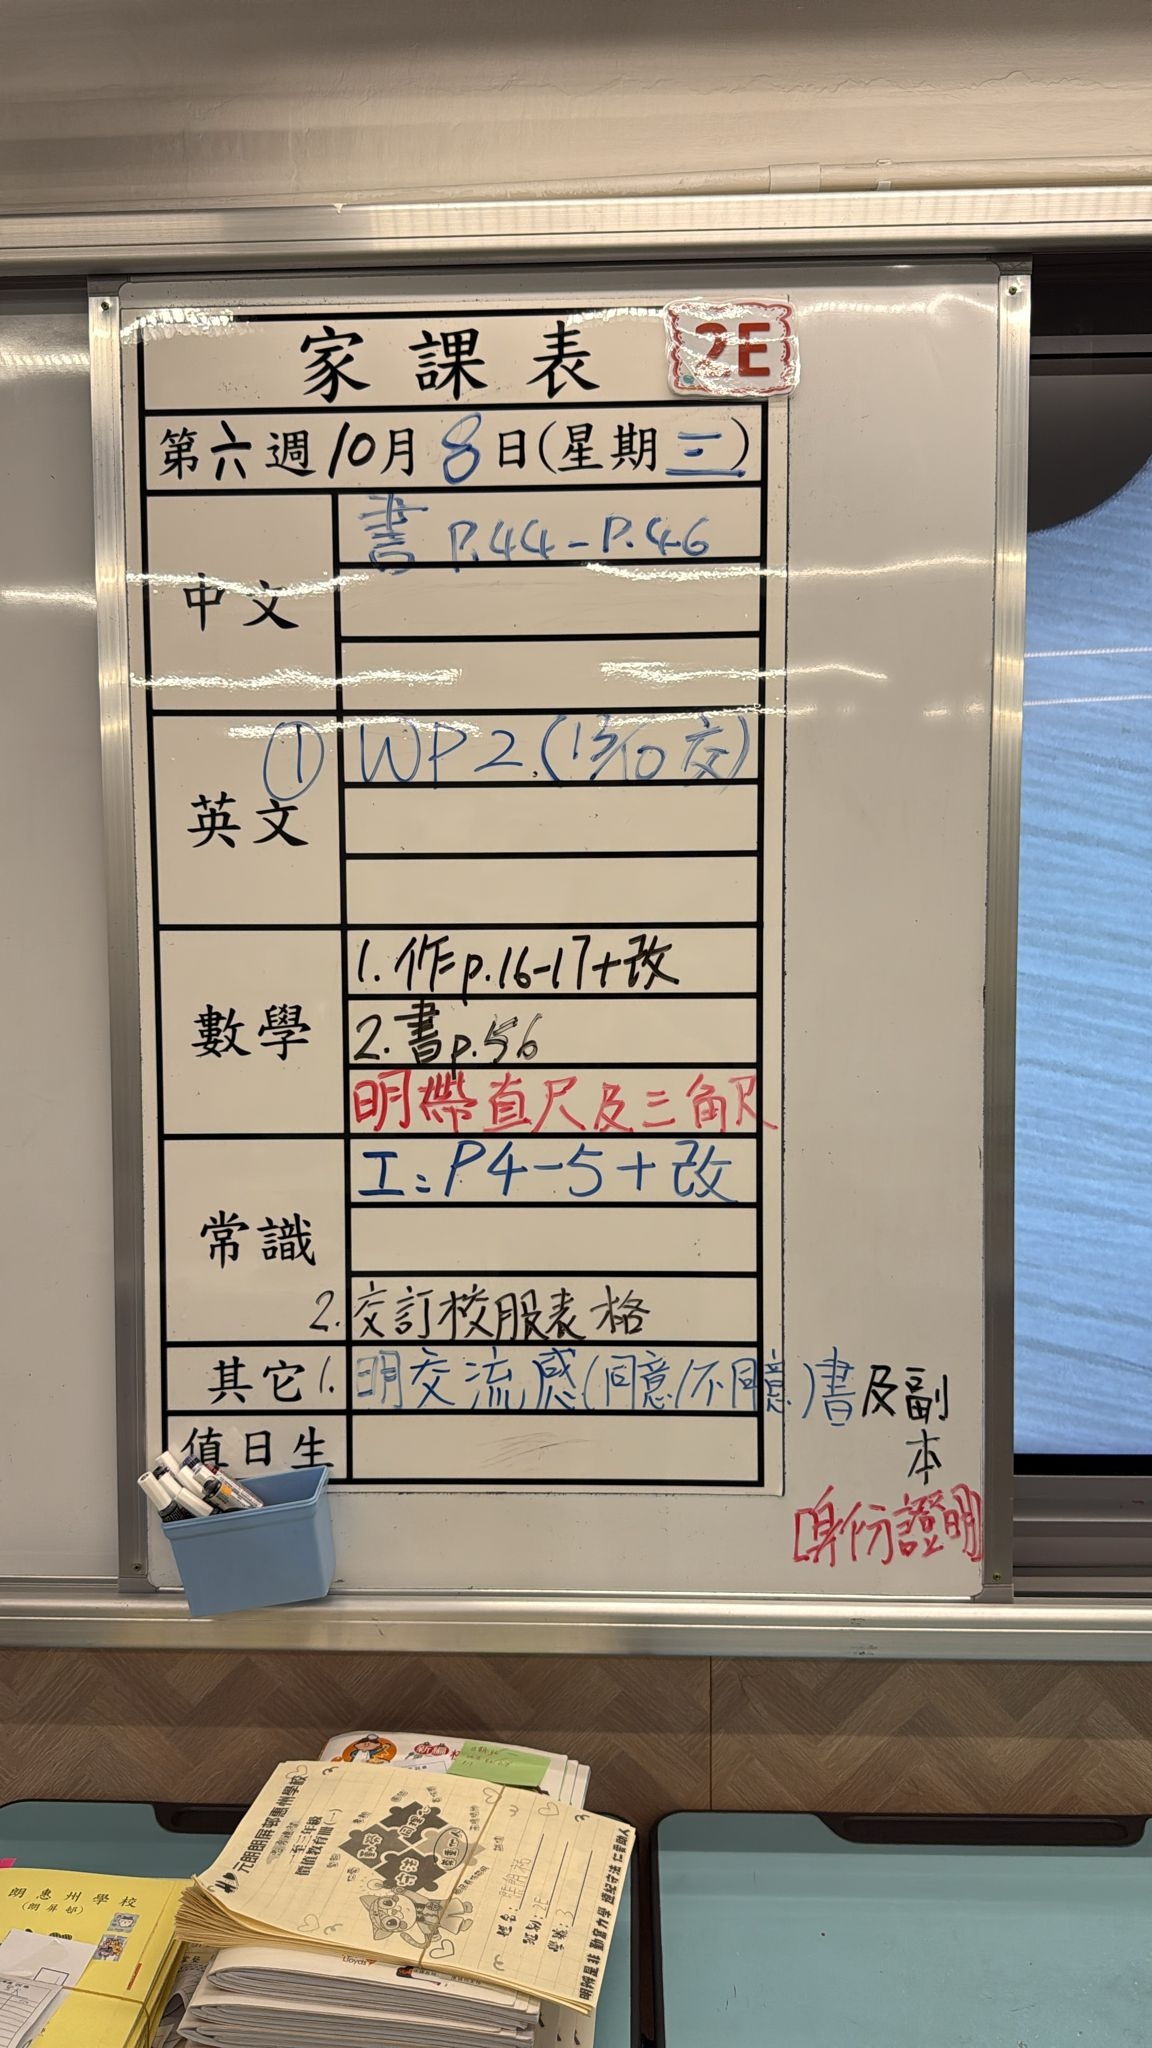 家課表
2E
第六週10月8日(星期三)
中文
書 P.44-P.46
英文
① WP2 (13/10交)
數學
1. 作p.16-17+改
2. 書p.56
明帶直尺及三角尺
常識
工：P4-5+改
2. 交訂校服表格
其它
1. 明交流感(同意/不同意)書及副本
[身份證明]
值日生
新編
元朗朗屏邨惠州學校
一至三年級
價值教育冊(一)
班別：2E
朗惠州學校
(朗屏邨)